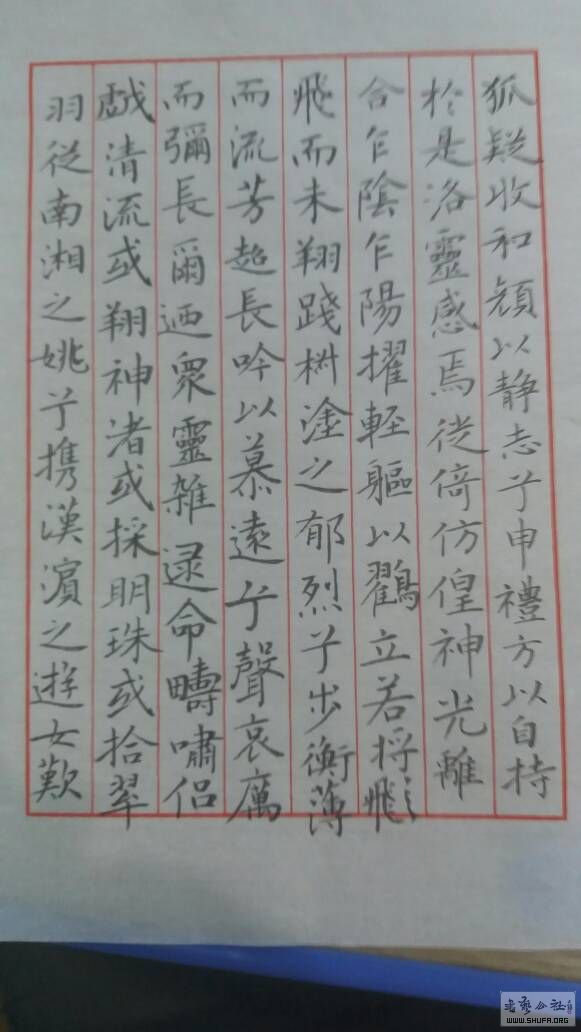 狐疑收和顔以静志兮申禮方以自持
於是洛靈感焉徙倚仿偟神光離
合乍陰乍陽擢軽軀以鸖立若捋飛
飛而未翔踐椒塗之郁烈兮步衡薄
而流芳超長吟以慕遠兮聲哀厲
而彌長爾迺衆靈雑遝命疇嘯侣
戯清流或翔神渚或採明珠或拾翠
羽従南湘之姚兮携漢濱之遊女歎
WWW.SHUFA.ORG